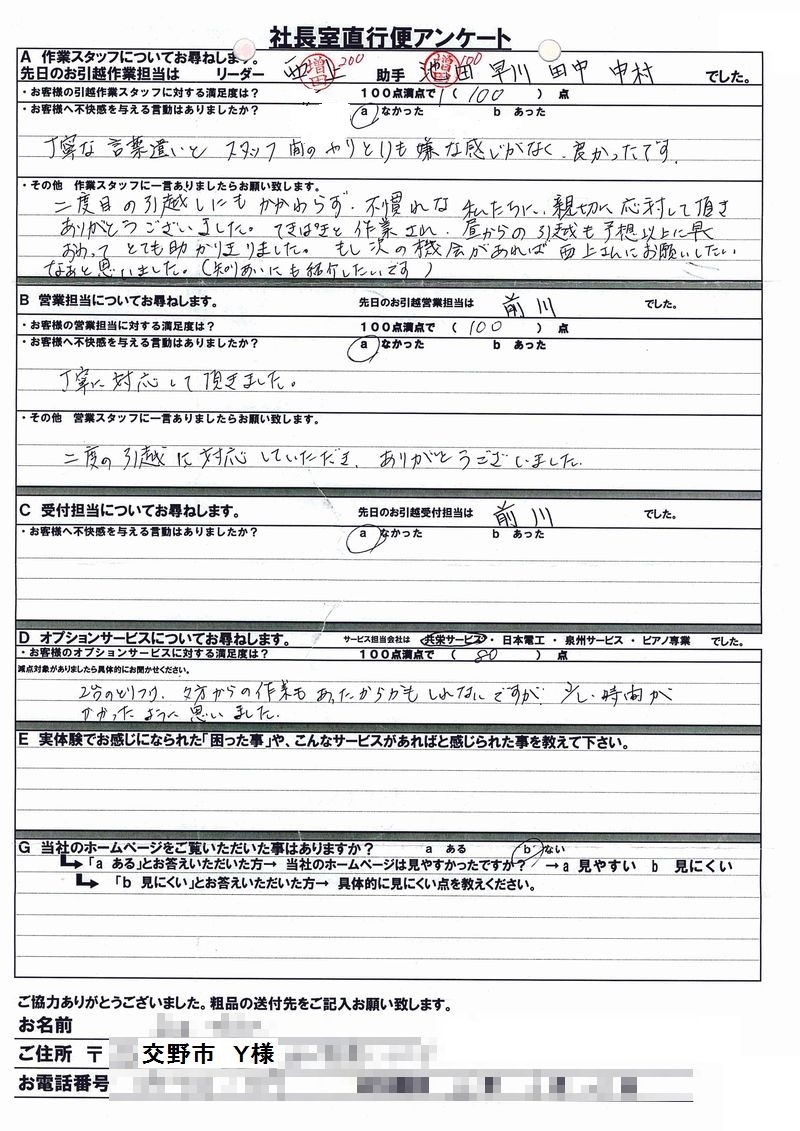 社長室直行便アンケート
A 作業スタッフについてお尋ねします。
先日のお引越作業担当は リーダー 西上 増田 200 助手 池田 増田 100 早川 田中 中村 でした。
・お客様の引越作業スタッフに対する満足度は? 100点満点で ( 100 ) 点
・お客様へ不快感を与える言動はありましたか? a なかった b あった
丁寧な言葉遣いと スタッフ間のやりとりも嫌な感じがなく、良かったです。
・その他 作業スタッフに一言ありましたらお願い致します。
二度目の引越しにもかかわらず、不慣れな 私たちに、親切に応対して頂き
ありがとうございました。てきぱきと作業され、昼からの引越も予想以上に早く
おわって とても助かりました。もし次の機会があれば 西上さんにお願いしたい
なぁと思いました。(知りあいにも紹介したいです)
B 営業担当についてお尋ねします。 先日のお引越営業担当は 前川 でした。
・お客様の営業担当に対する満足度は? 100点満点で ( 100 ) 点
・お客様へ不快感を与える言動はありましたか? a なかった b あった
丁寧に対応して頂きました。
・その他 営業スタッフに一言ありましたらお願い致します。
二度の引越に対応していただき、ありがとうございました。
C 受付担当についてお尋ねします。 先日のお引越受付担当は 前川 でした。
・お客様へ不快感を与える言動はありましたか? a なかった b あった
D オプションサービスについてお尋ねします。 サービス担当会社は 共栄サービス・ 日本電工 ・ 泉州サービス ・ ピアノ専業 でした。
・お客様のオプションサービスに対する満足度は? 100点満点で ( 80 ) 点
減点対象がありましたら具体的にお聞かせください。
2台のとりつけ、夕方からの作業もあったからかもしれないですが、少し時間が
かかったように思いました。
E 実体験でお感じになられた「困った事」や、こんなサービスがあればと感じられた事を教えて下さい。
G 当社のホームページをご覧いただいた事はありますか? a ある b ない
「a ある」とお答えいただいた方→ 当社のホームページは見やすかったですか? →a 見やすい b 見にくい
「b 見にくい」とお答えいただいた方→ 具体的に見にくい点を教えください。
ご協力ありがとうございました。粗品の送付先をご記入お願い致します。
お名前
ご住所 〒 交野市 Y様
お電話番号